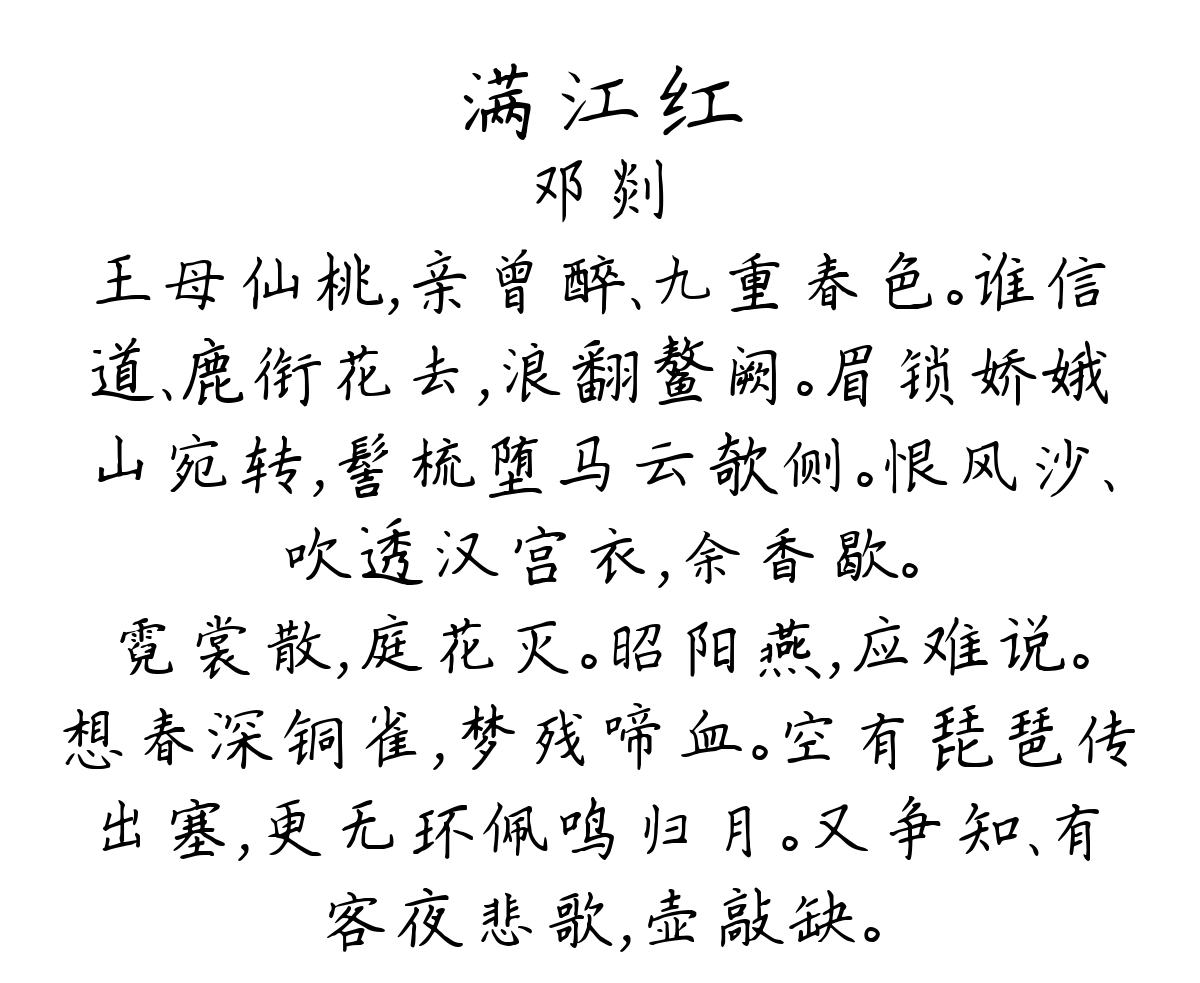 满江红
邓剡
王母仙桃,亲曾醉、九重春色。谁信
道、鹿衔花去,浪翻鳌阙。眉锁娇娥
山宛转,髻梳堕马云欹侧。恨风沙、
吹透汉宫衣,余香歇。
霓裳散,庭花灭。昭阳燕,应难说。
想春深铜雀,梦残啼血。空有琵琶传
出塞,更无环佩鸣归月。又争知、有
客夜悲歌,壶敲缺。